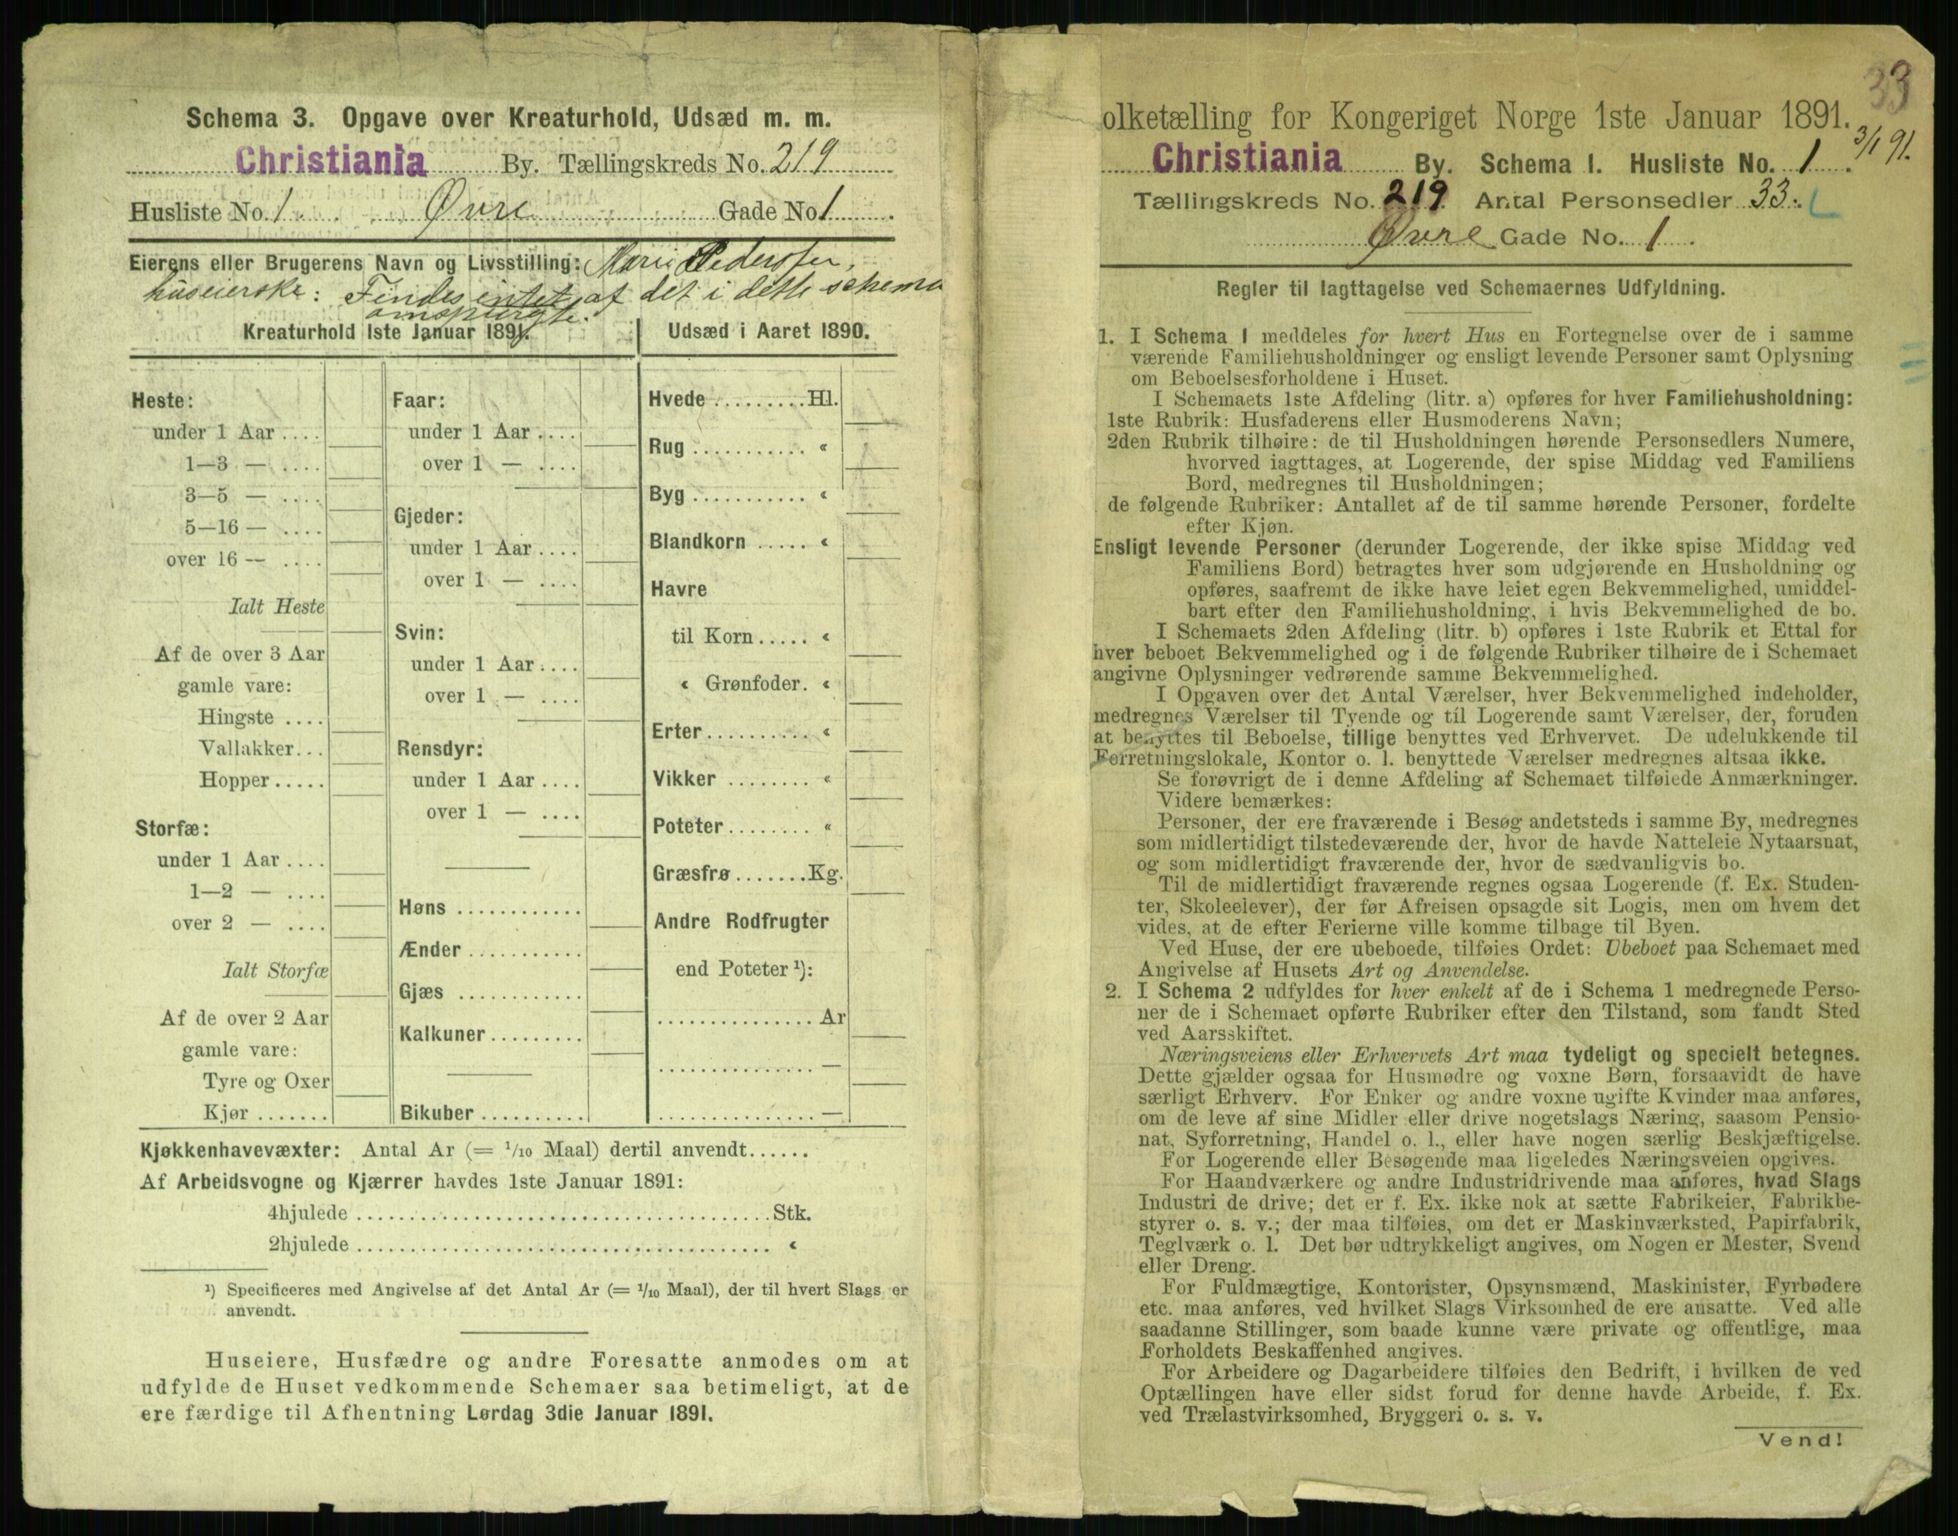 Schema 3. Opgave over Kreaturhold, Udsæd m. m.
Christiania By. Tællingskreds No. 219
Husliste No. 1. Øvre Gade No 1.
Eierens eller Brugerens Navn og Livsstilling: Marie Pedersen,
huseierske: Findes intet af det i dette schema
omspurgte.
Kreaturhold 1ste Januar 1891. Udsæd i Aaret 1890.
Heste:
under 1 Aar ....
1—3 — ....
3—5 — ....
5—16 — ....
over 16 — ....
Ialt Heste
Af de over 3 Aar
gamle vare:
Hingste ....
Vallakker...
Hopper.....
Storfæ:
under 1 Aar ....
1—2 — ....
over 2 — ....
Ialt Storfæ
Af de over 2 Aar
gamle vare:
Tyre og Oxer
Kjør .......
Faar:
under 1 Aar ....
over 1 — ....
Gjeder:
under 1 Aar ....
over 1 — ....
Svin:
under 1 Aar ....
over 1 — ....
Rensdyr:
under 1 Aar ....
over 1 — ....
Høns ............
Ænder ...........
Gjæs ............
Kalkuner.........
Bikuber ..........
Hvede .........Hl.
Rug ........... «
Byg ........... «
Blandkorn ..... «
Havre
til Korn ..... «
« Grønfoder. «
Erter.......... «
Vikker ........ «
Poteter........ «
Græsfrø.......Kg.
Andre Rodfrugter
end Poteter ¹):
............... Ar
............... —
............... —
Kjøkkenhavevæxter: Antal Ar (= 1/10 Maal) dertil anvendt......
Af Arbeidsvogne og Kjærrer havdes 1ste Januar 1891:
4hjulede ........................................Stk.
2hjulede ........................................ «
¹) Specificeres med Angivelse af det Antal Ar (= 1/10 Maal), der til hvert Slags er
anvendt.
Huseiere, Husfædre og andre Foresatte anmodes om at
udfylde de Huset vedkommende Schemaer saa betimeligt, at de
ere færdige til Afhentning Lørdag 3die Januar 1891.
33
olketælling for Kongeriget Norge 1ste Januar 1891.
Christiania By. Schema 1. Husliste No. 1. 3/1 91.
Tællingskreds No. 219. Antal Personsedler 33.
Øvre Gade No. 1.
Regler til Iagttagelse ved Schemaernes Udfyldning.
1. I Schema 1 meddeles for hvert Hus en Fortegnelse over de i samme
værende Familiehusholdninger og ensligt levende Personer samt Oplysning
om Beboelsesforholdene i Huset.
I Schemaets 1ste Afdeling (litr. a) opføres for hver Familiehusholdning:
1ste Rubrik: Husfaderens eller Husmoderens Navn;
2den Rubrik tilhøire: de til Husholdningen hørende Personsedlers Numere,
hvorved iagttages, at Logerende, der spise Middag ved Familiens
Bord, medregnes til Husholdningen;
de følgende Rubriker: Antallet af de til samme hørende Personer, fordelte
efter Kjøn.
Ensligt levende Personer (derunder Logerende, der ikke spise Middag ved
Familiens Bord) betragtes hver som udgjørende en Husholdning og
opføres, saafremt de ikke have leiet egen Bekvemmelighed, umiddel-
bart efter den Familiehusholdning, i hvis Bekvemmelighed de bo.
I Schemaets 2den Afdeling (litr. b) opføres i 1ste Rubrik et Ettal for
hver beboet Bekvemmelighed og i de følgende Rubriker tilhøire de i Schemaet
angivne Oplysninger vedrørende samme Bekvemmelighed.
I Opgaven over det Antal Værelser, hver Bekvemmelighed indeholder,
medregnes Værelser til Tyende og til Logerende samt Værelser, der, foruden
at benyttes til Beboelse, tillige benyttes ved Erhvervet. De udelukkende til
Forretningslokale, Kontor o. l. benyttede Værelser medregnes altsaa ikke.
Se forøvrigt de i denne Afdeling af Schemaet tilføiede Anmærkninger.
Videre bemærkes:
Personer, der ere fraværende i Besøg andetsteds i samme By, medregnes
som midlertidigt tilstedeværende der, hvor de havde Natteleie Nytaarsnat,
og som midlertidigt fraværende der, hvor de sædvanligvis bo.
Til de midlertidigt fraværende regnes ogsaa Logerende (f. Ex. Studen-
ter, Skoleelever), der før Afreisen opsagde sit Logis, men om hvem det
vides, at de efter Ferierne ville komme tilbage til Byen.
Ved Huse, der ere ubeboede, tilføies Ordet: Ubeboet paa Schemaet med
Angivelse af Husets Art og Anvendelse.
2. I Schema 2 udfyldes for hver enkelt af de i Schema 1 medregnede Perso-
ner de i Schemaet opførte Rubriker efter den Tilstand, som fandt Sted
ved Aarsskiftet.
Næringsveiens eller Erhvervets Art maa tydeligt og specielt betegnes.
Dette gjælder ogsaa for Husmødre og voxne Børn, forsaavidt de have
særligt Erhverv. For Enker og andre voxne ugifte Kvinder maa anføres,
om de leve af sine Midler eller drive nogetslags Næring, saasom Pensio-
nat, Syforretning, Handel o. l., eller have nogen særlig Beskjæftigelse.
For Logerende eller Besøgende maa ligeledes Næringsveien opgives.
For Haandværkere og andre Industridrivende maa anføres, hvad Slags
Industri de drive; det er f. Ex. ikke nok at sætte Fabrikeier, Fabrikbe-
styrer o. s. v.; der maa tilføies, om det er Maskinværksted, Papirfabrik,
Teglværk o. l. Det bør udtrykkeligt angives, om Nogen er Mester, Svend
eller Dreng.
For Fuldmægtige, Kontorister, Opsynsmænd, Maskinister, Fyrbødere
etc. maa anføres, ved hvilket Slags Virksomhed de ere ansatte. Ved alle
saadanne Stillinger, som baade kunne være private og offentlige, maa
Forholdets Beskaffenhed angives.
For Arbeidere og Dagarbeidere tilføies den Bedrift, i hvilken de ved
Optællingen have eller sidst forud for denne havde Arbeide, f. Ex.
ved Trælastvirksomhed, Bryggeri o. s. v.
Vend!